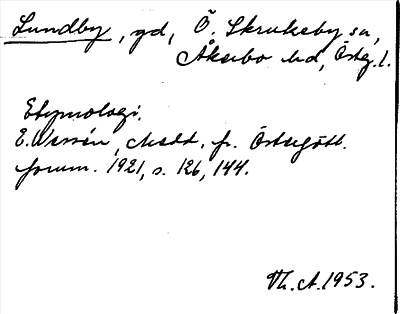 Lundby, gd, Ö. Skrukeby sn,
Åkerbo hd, Östg. l.
Etymologi.
E. Wessén, Medd. fr. Östergötl.
fornm. 1921, s. 126, 144.
Th. A. 1953.